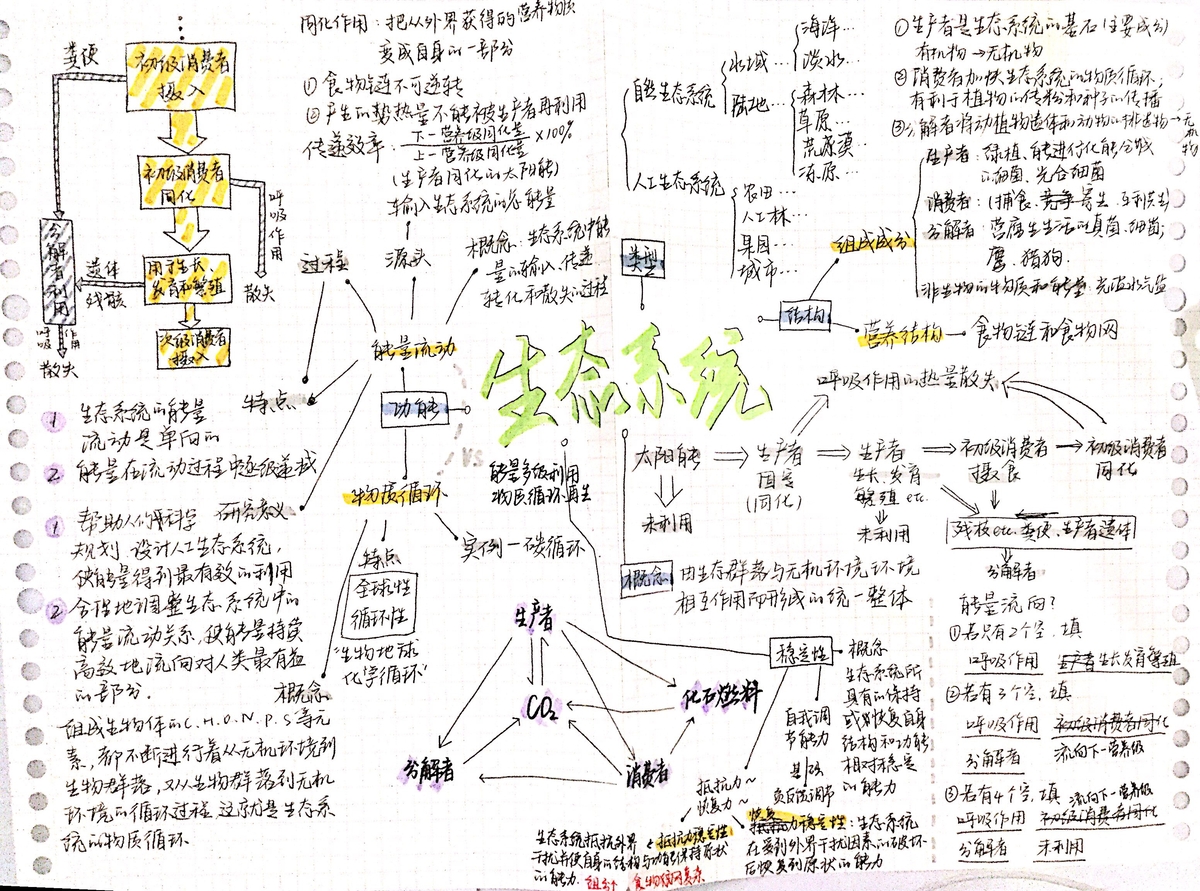 生态系统
同化作用：把从外界获得的营养物质
变成自身的一部分
①食物链不可逆转
②产生的热量不能被生产者再利用
传递效率：下一营养级同化量/上一营养级同化量×100%
(生产者同化的太阳能)
输入生态系统的总能量
粪便
初级消费者
摄入
初级消费者
同化
呼吸作用
散失
分解者利用
遗体
残骸
用于生长
发育和繁殖
次级消费者
摄入
呼吸作用
散失
过程
源头
概念：生态系统中能
量的输入、传递
转化和散失的过程
能量流动
特点
功能
1 生态系统的能量
流动是单向的
2 能量在流动过程中逐级递减
研究意义
1 帮助人们科学
规划、设计人工生态系统，
使能量得到最有效的利用
2 合理地调整生态系统中的
能量流动关系，使能量持续
高效地流向对人类最有益
的部分.
VS
能量多级利用
物质循环再生
物质循环
特点
全球性
循环性
"生物地球
化学循环"
实例—碳循环
概念
组成生物体的C.H.O.N.P.S等元
素，都不断进行着从无机环境到
生物群落，又从生物群落到无机
环境的循环过程.这就是生态系
统的物质循环.
生产者
CO2
化石燃料
分解者
消费者
类型
自然生态系统
水域…
海洋…
淡水…
陆地
森林…
草原…
荒漠…
冻原…
人工生态系统
农田…
人工林…
果园…
城市…
①生产者是生态系统的基石(主要成分)
有机物→无机物
②消费者加快生态系统的物质循环；
有利于植物的传粉和种子的传播
③分解者将动植物遗体和动物的排遗物→无机物
结构
组成成分
生产者：绿植，能进行化能合成
的细菌、光合细菌
消费者：(捕食、竞争 寄生、互利共生)
分解者：营腐生生活的真菌、细菌；
非生物的物质和能量：光温水气
营养结构—食物链和食物网
呼吸作用的热量散失
太阳能
未利用
生产者
固定
(同化)
生产者
生长.发育
繁殖 etc.
未利用
初级消费者
摄食
初级消费者
同化
残枝etc.粪便、生产者遗体
分解者
概念
由生态群落与无机环境环境
相互作用而形成的统一整体
稳定性
概念
生态系统所
具有的保持
或恢复自身
结构和功能
相对稳定
的能力
自我调
节能力
基础
负反馈调节
抵抗力~
恢复力~
抵抗力稳定性
生态系统抵抗外界
干扰并使自身的结构与功能保持原状
的能力. 组分↑ 食物网复杂
恢复
抵抗力稳定性：生态系统
在受到外界干扰因素的破坏
后恢复到原状的能力
能量流向？
①若只有2个空，填
呼吸作用 生产者生长发育繁殖
②若有3个空，填
呼吸作用 初级消费者同化
分解者 流向下一营养级
③若有4个空，填 流向下一营养级
呼吸作用 初级消费者同化
分解者 未利用